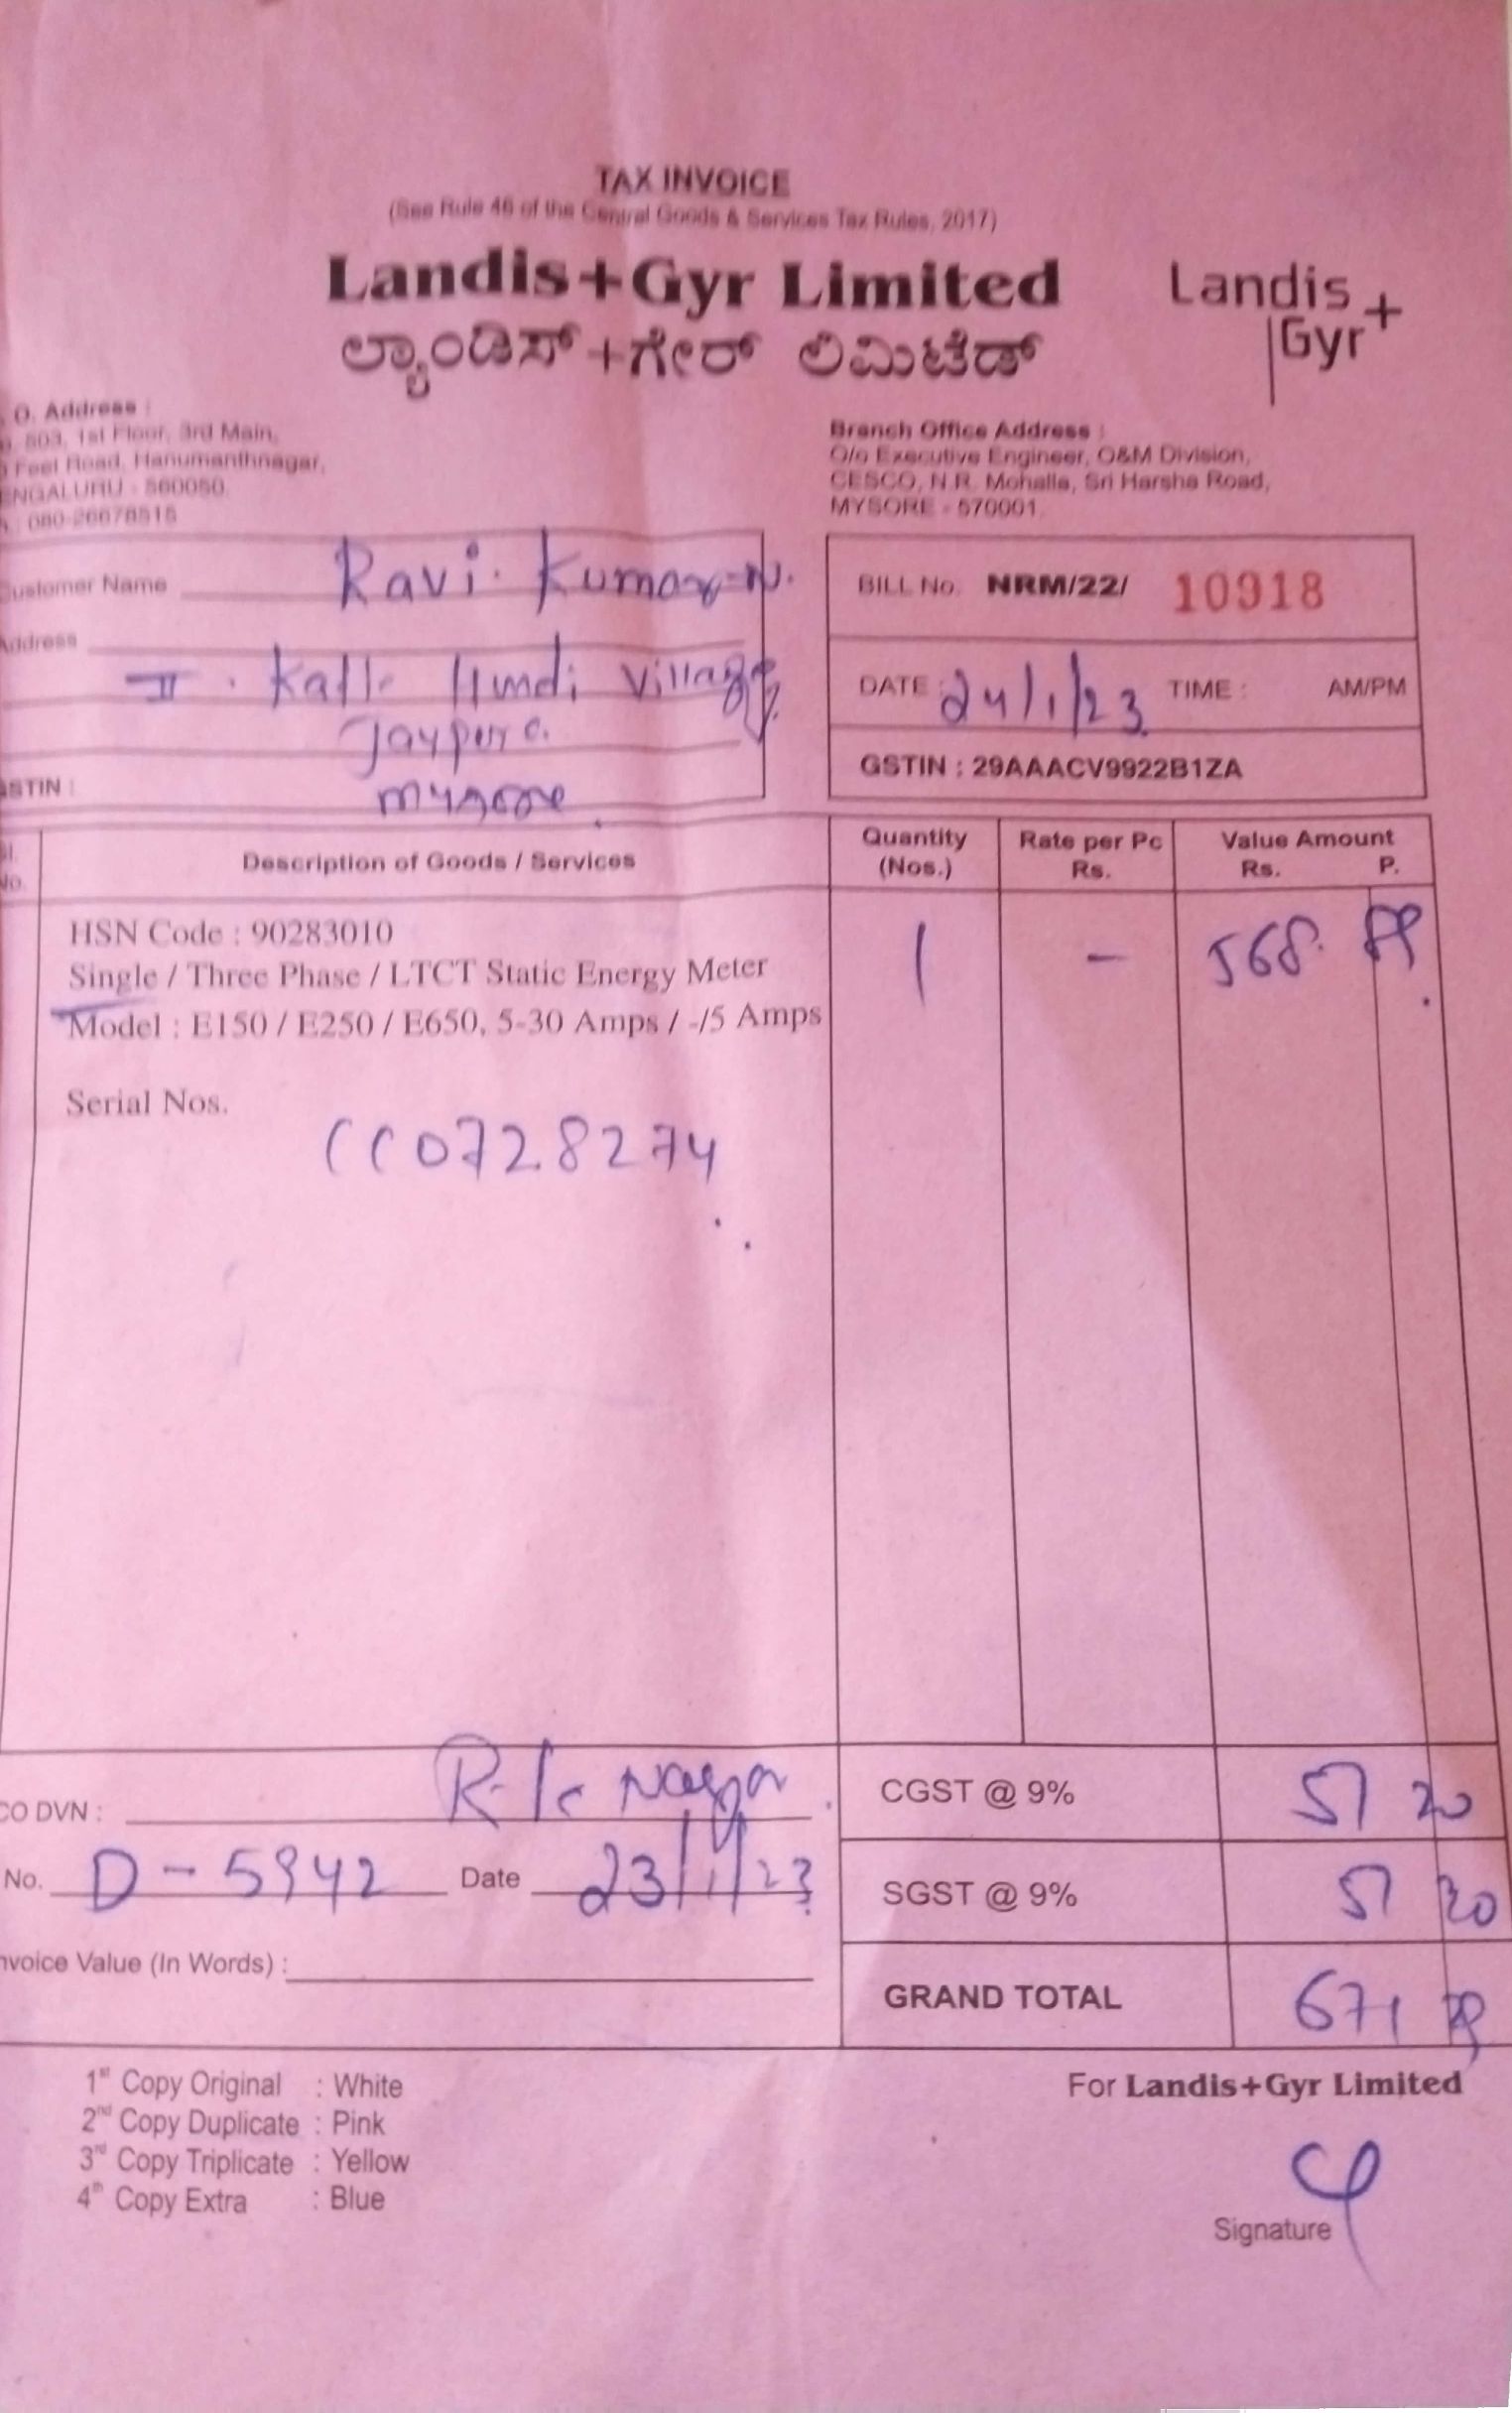 TAX INVOICE
(See Rule 46 of the Central Goods & Services Tax Rules, 2017)
Landis+Gyr Limited
ಲ್ಯಾಂಡಿಸ್+ಗೇರ್ ಲಿಮಿಟೆಡ್
Landis+
Gyr
O. Address :
503, 1st Floor, 3rd Main,
Feet Road, Hanumanthnagar,
ENGALURU - 560050.
: 080-26678515
Branch Office Address :
O/o Executive Engineer, O&M Division,
CESCO, N.R. Mohalla, Sri Harsha Road,
MYSORE - 570001.
ustomer Name Ravi. Kumar-N.
Address
II. Kalle Hundi Village
Jaypura.
STIN : mysore
BILL No. NRM/22/ 10918
DATE : 24/1/23 TIME : AM/PM
GSTIN : 29AAACV9922B1ZA
No. Description of Goods / Services Quantity (Nos.) Rate per Pc Rs. Value Amount Rs. P.
HSN Code : 90283010 1 - 568.
Single / Three Phase / LTCT Static Energy Meter
Model : E150 / E250 / E650, 5-30 Amps / -/5 Amps
Serial Nos.
CC0728274
CO DVN : R.K Nagar
No. D-5942 Date 23/1/23
nvoice Value (In Words) :
CGST @ 9% 51 20
SGST @ 9% 51 20
GRAND TOTAL 671
1st Copy Original : White
2nd Copy Duplicate : Pink
3rd Copy Triplicate : Yellow
4th Copy Extra : Blue
For Landis+Gyr Limited
Signature